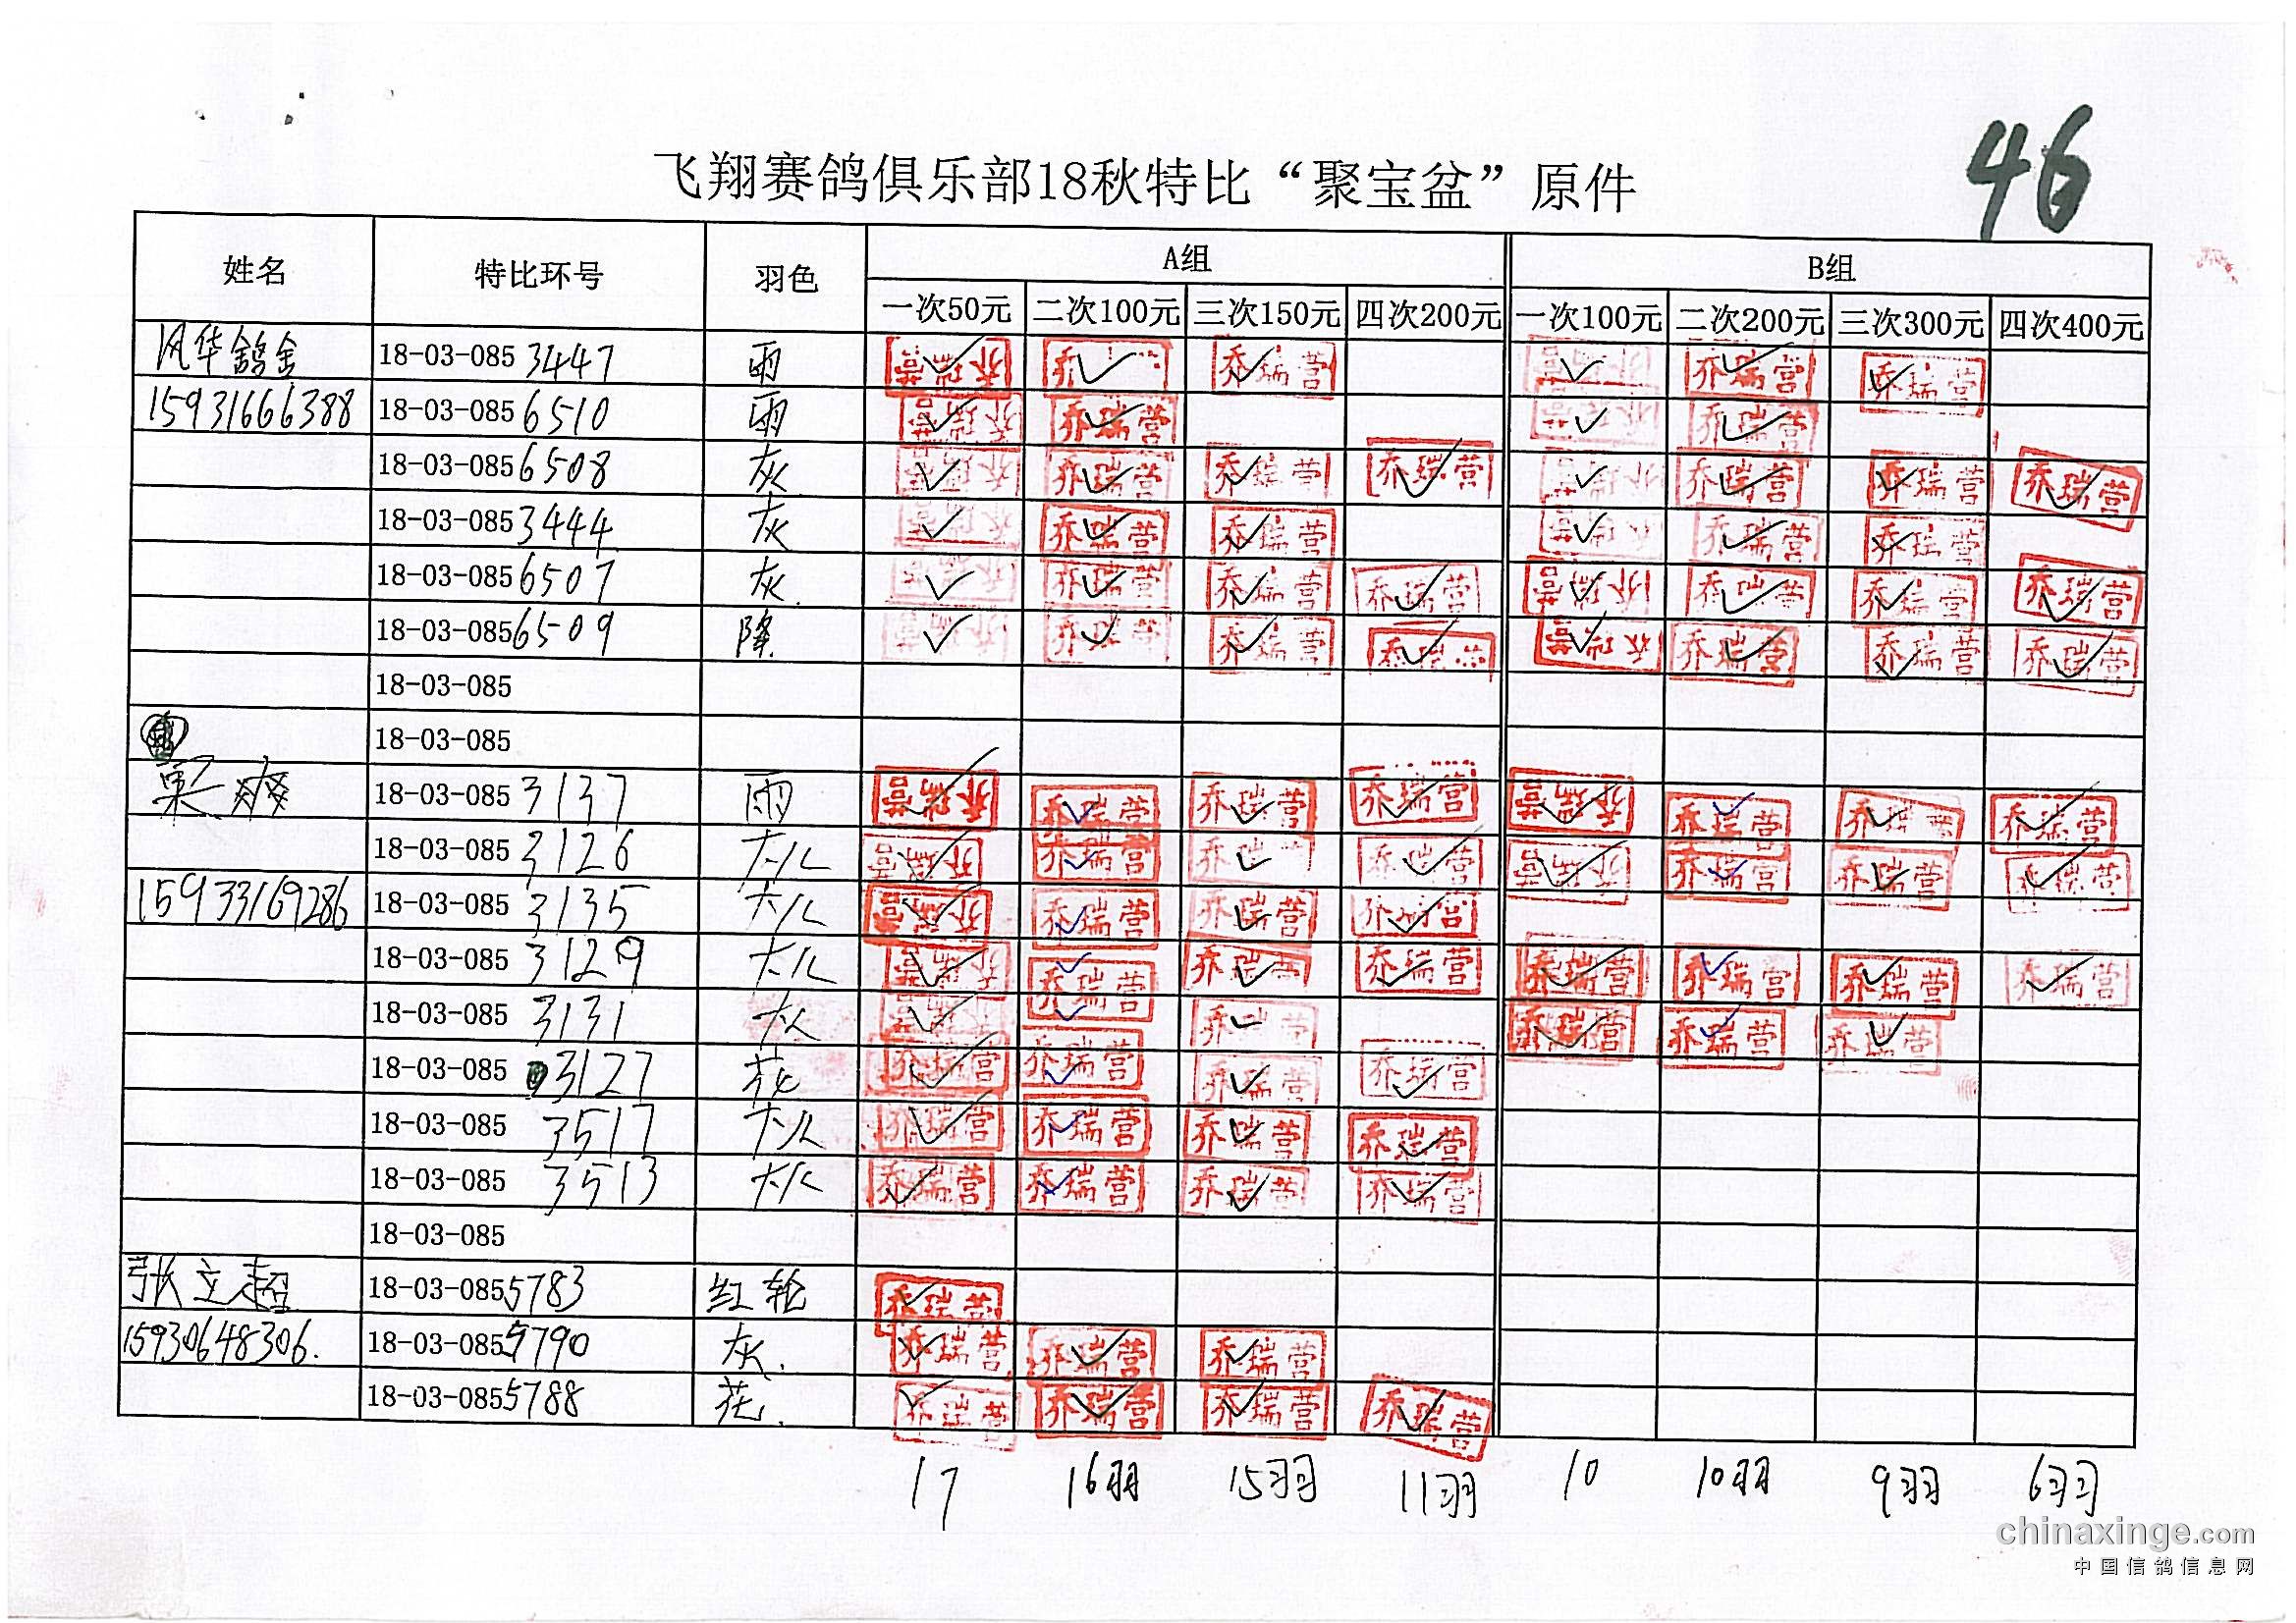 46
飞翔赛鸽俱乐部18秋特比“聚宝盆”原件
姓名 特比环号 羽色 A组 B组
一次50元 二次100元 三次150元 四次200元 一次100元 二次200元 三次300元 四次400元
风华鸽舍 18-03-085 3447 雨 乔瑞营 乔 乔瑞营 乔瑞营 乔瑞营 乔瑞营
15931666388 18-03-085 6510 雨 乔瑞营 乔瑞营 乔瑞营 乔瑞营
18-03-085 6508 灰 乔瑞营 乔瑞营 乔瑞营 乔瑞营 乔瑞营 乔瑞营 乔瑞营 乔瑞营
18-03-085 3444 灰 乔瑞营 乔瑞营 乔瑞营 乔瑞营 乔瑞营 乔瑞营
18-03-085 6507 灰. 乔瑞营 乔瑞营 乔瑞营 乔瑞营 乔瑞营 乔瑞营 乔瑞营 乔瑞营
18-03-085 6509 降. 乔瑞营 乔瑞营 乔瑞营 乔瑞营 乔瑞营 乔瑞营 乔瑞营 乔瑞营
18-03-085
18-03-085
栗爽 18-03-085 3137 雨 乔瑞营 乔瑞营 乔瑞营 乔瑞营 乔瑞营 乔瑞营 乔瑞营 乔瑞营
18-03-085 3126 灰 乔瑞营 乔瑞营 乔瑞营 乔瑞营 乔瑞营 乔瑞营 乔瑞营 乔瑞营
15933169286 18-03-085 3135 灰 乔瑞营 乔瑞营 乔瑞营 乔瑞营
18-03-085 3129 灰 乔瑞营 乔瑞营 乔瑞营 乔瑞营 乔瑞营 乔瑞营 乔瑞营 乔瑞营
18-03-085 3131 灰 乔瑞营 乔瑞营 乔瑞营 乔瑞营 乔瑞营 乔瑞营
18-03-085 3127 花 乔瑞营 乔瑞营 乔瑞营 乔瑞营
18-03-085 3517 灰 乔瑞营 乔瑞营 乔瑞营 乔瑞营
18-03-085 3513 灰 乔瑞营 乔瑞营 乔瑞营 乔瑞营
18-03-085
张立超 18-03-085 5783 红轮 乔瑞营
15930648306. 18-03-085 5790 灰. 乔瑞营 乔瑞营 乔瑞营
18-03-085 5788 花. 乔瑞营 乔瑞营 乔瑞营 乔瑞营
17 16羽 15羽 11羽 10 10羽 9羽 6羽
chinaxinge.com
中国信鸽信息网